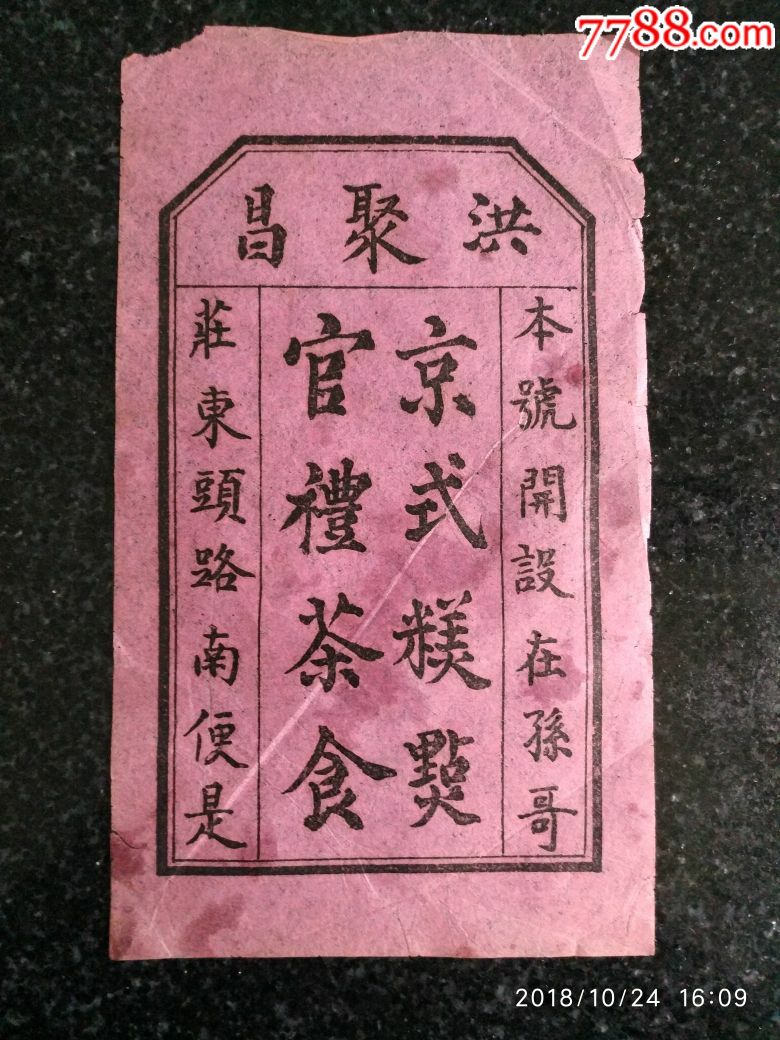 7788.com
洪聚昌
本號開設在孫哥
京式糕點
官禮茶食
莊東頭路南便是
2018/10/24 16:09